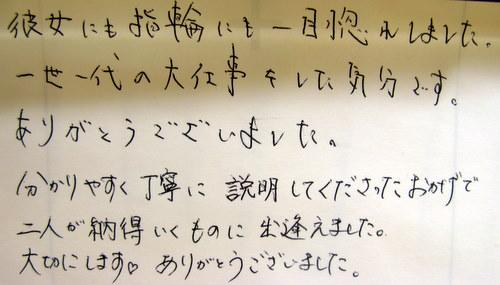 彼女にも指輪にも一目惚れしました。
一世一代の大仕事をした気分です。
ありがとうございました。
分かりやすく丁寧に説明してくださったおかげで
二人が納得いくものに出逢えました。
大切にします♡ ありがとうございました。